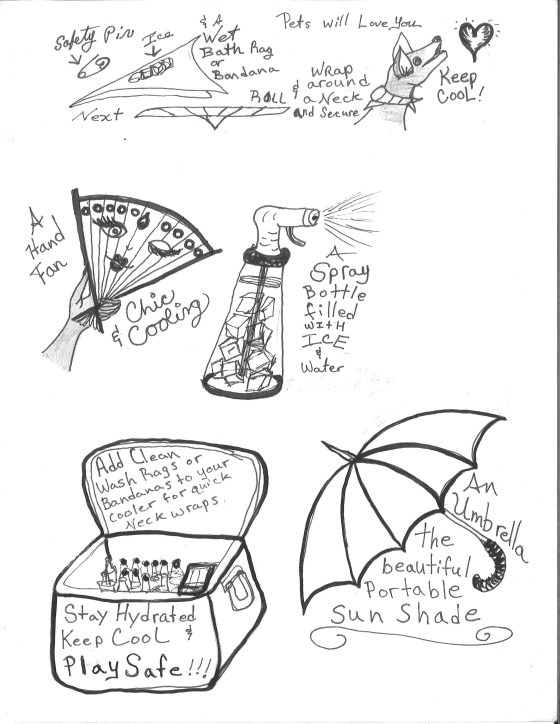 Safety Pin
Ice
& A
Wet
Bath Rag
or
Bandana
Next
Roll
Pets will Love You
& Wrap
around
a Neck
and Secure
Keep
Cool!
A
Hand
Fan
Chic
& Cooling
A
Spray
Bottle
filled
with
ICE
&
Water
Add Clean
Wash Rags or
Bandanas to your
cooler for quick
Neck wraps.
Stay Hydrated
Keep Cool &
Play Safe!!!
An
Umbrella
the
beautiful
Portable
Sun Shade